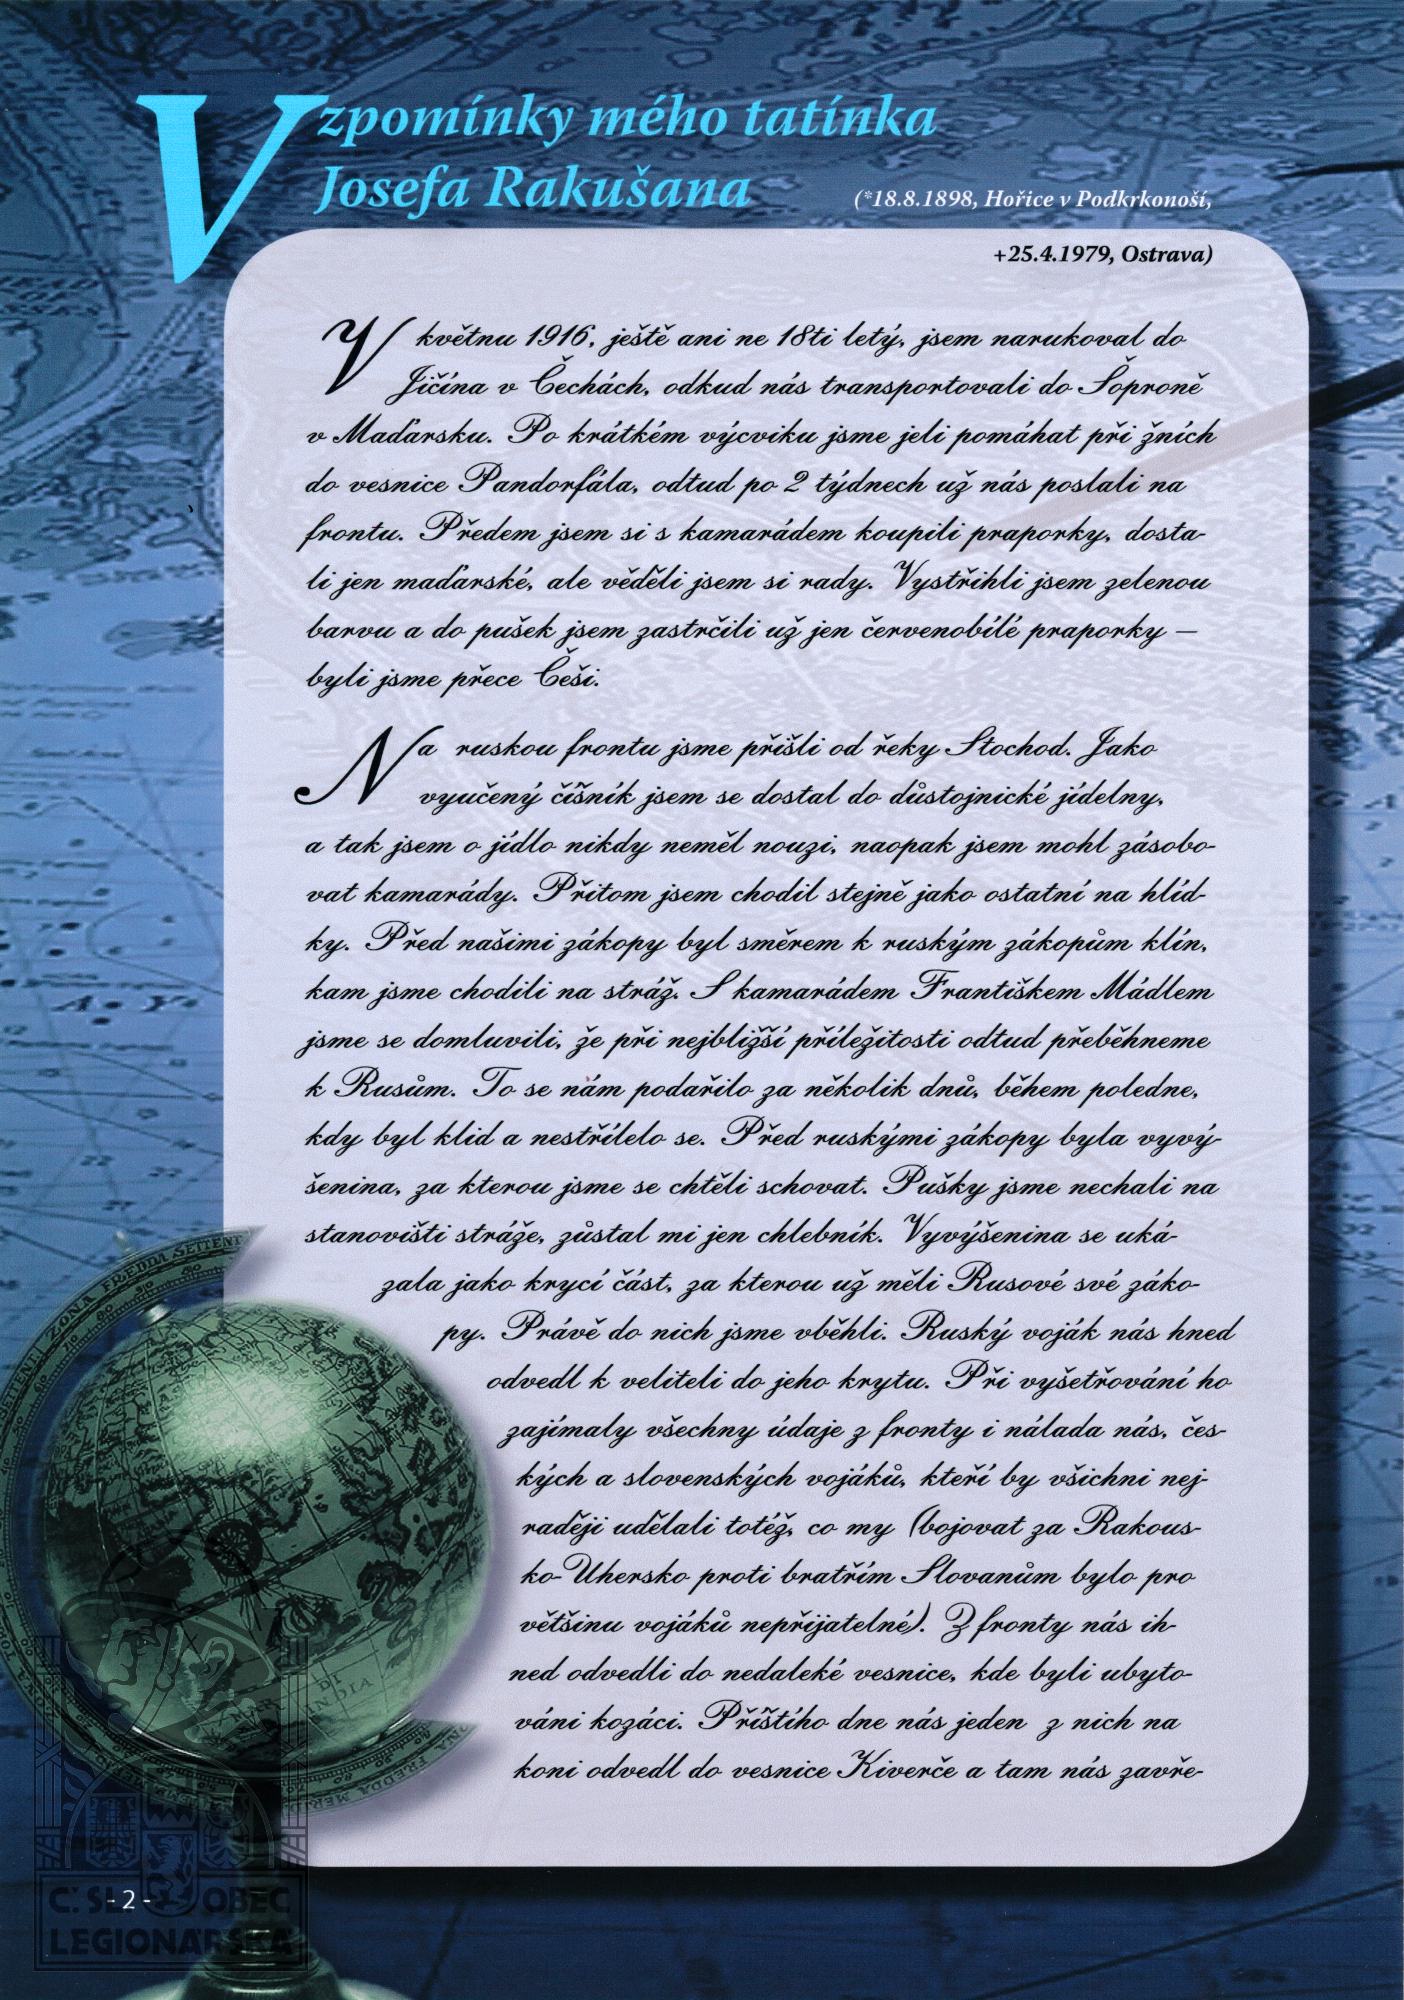 Vzpomínky mého tatínka
Josefa Rakušana (*18.8.1898, Hořice v Podkrkonoší,
+25.4.1979, Ostrava)
V květnu 1916, ještě ani ne 18ti letý, jsem narukoval do
Jičína v Čechách, odkud nás transportovali do Šoproně
v Maďarsku. Po krátkém výcviku jsme jeli pomáhat při žních
do vesnice Pandorfála, odtud po 2 týdnech už nás poslali na
frontu. Předem jsem si s kamarádem koupili praporky, dosta-
li jen maďarské, ale věděli jsem si rady. Vystřihli jsem zelenou
barvu a do pušek jsem zastrčili už jen červenobílé praporky –
byli jsme přece Češi.
Na ruskou frontu jsme přišli od řeky Stochod. Jako
vyučený číšník jsem se dostal do důstojnické jídelny,
a tak jsem o jídlo nikdy neměl nouzi, naopak jsem mohl zásobo-
vat kamarády. Přitom jsem chodil stejně jako ostatní na hlíd-
ky. Před našimi zákopy byl směrem k ruským zákopům klín,
kam jsme chodili na stráž. S kamarádem Františkem Mádlem
jsme se domluvili, že při nejbližší příležitosti odtud přeběhneme
k Rusům. To se nám podařilo za několik dnů, během poledne,
kdy byl klid a nestřílelo se. Před ruskými zákopy byla vyvý-
šenina, za kterou jsme se chtěli schovat. Pušky jsme nechali na
stanovišti stráže, zůstal mi jen chlebník. Vyvýšenina se uká-
zala jako krycí část, za kterou už měli Rusové své záko-
py. Právě do nich jsme vběhli. Ruský voják nás hned
odvedl k veliteli do jeho krytu. Při vyšetřování ho
zajímaly všechny údaje z fronty i nálada nás, čes-
kých a slovenských vojáků, kteří by všichni nej-
raději udělali totéž, co my (bojovat za Rakous-
ko-Uhersko proti bratřím Slovanům bylo pro
většinu vojáků nepřijatelné). Z fronty nás ih-
ned odvedli do nedaleké vesnice, kde byli ubyto-
váni kozáci. Příštího dne nás jeden z nich na
koni odvedl do vesnice Kiverče a tam nás zavře-
- 2 -
Č. SL. OBEC
LEGIONÁŘSKÁ